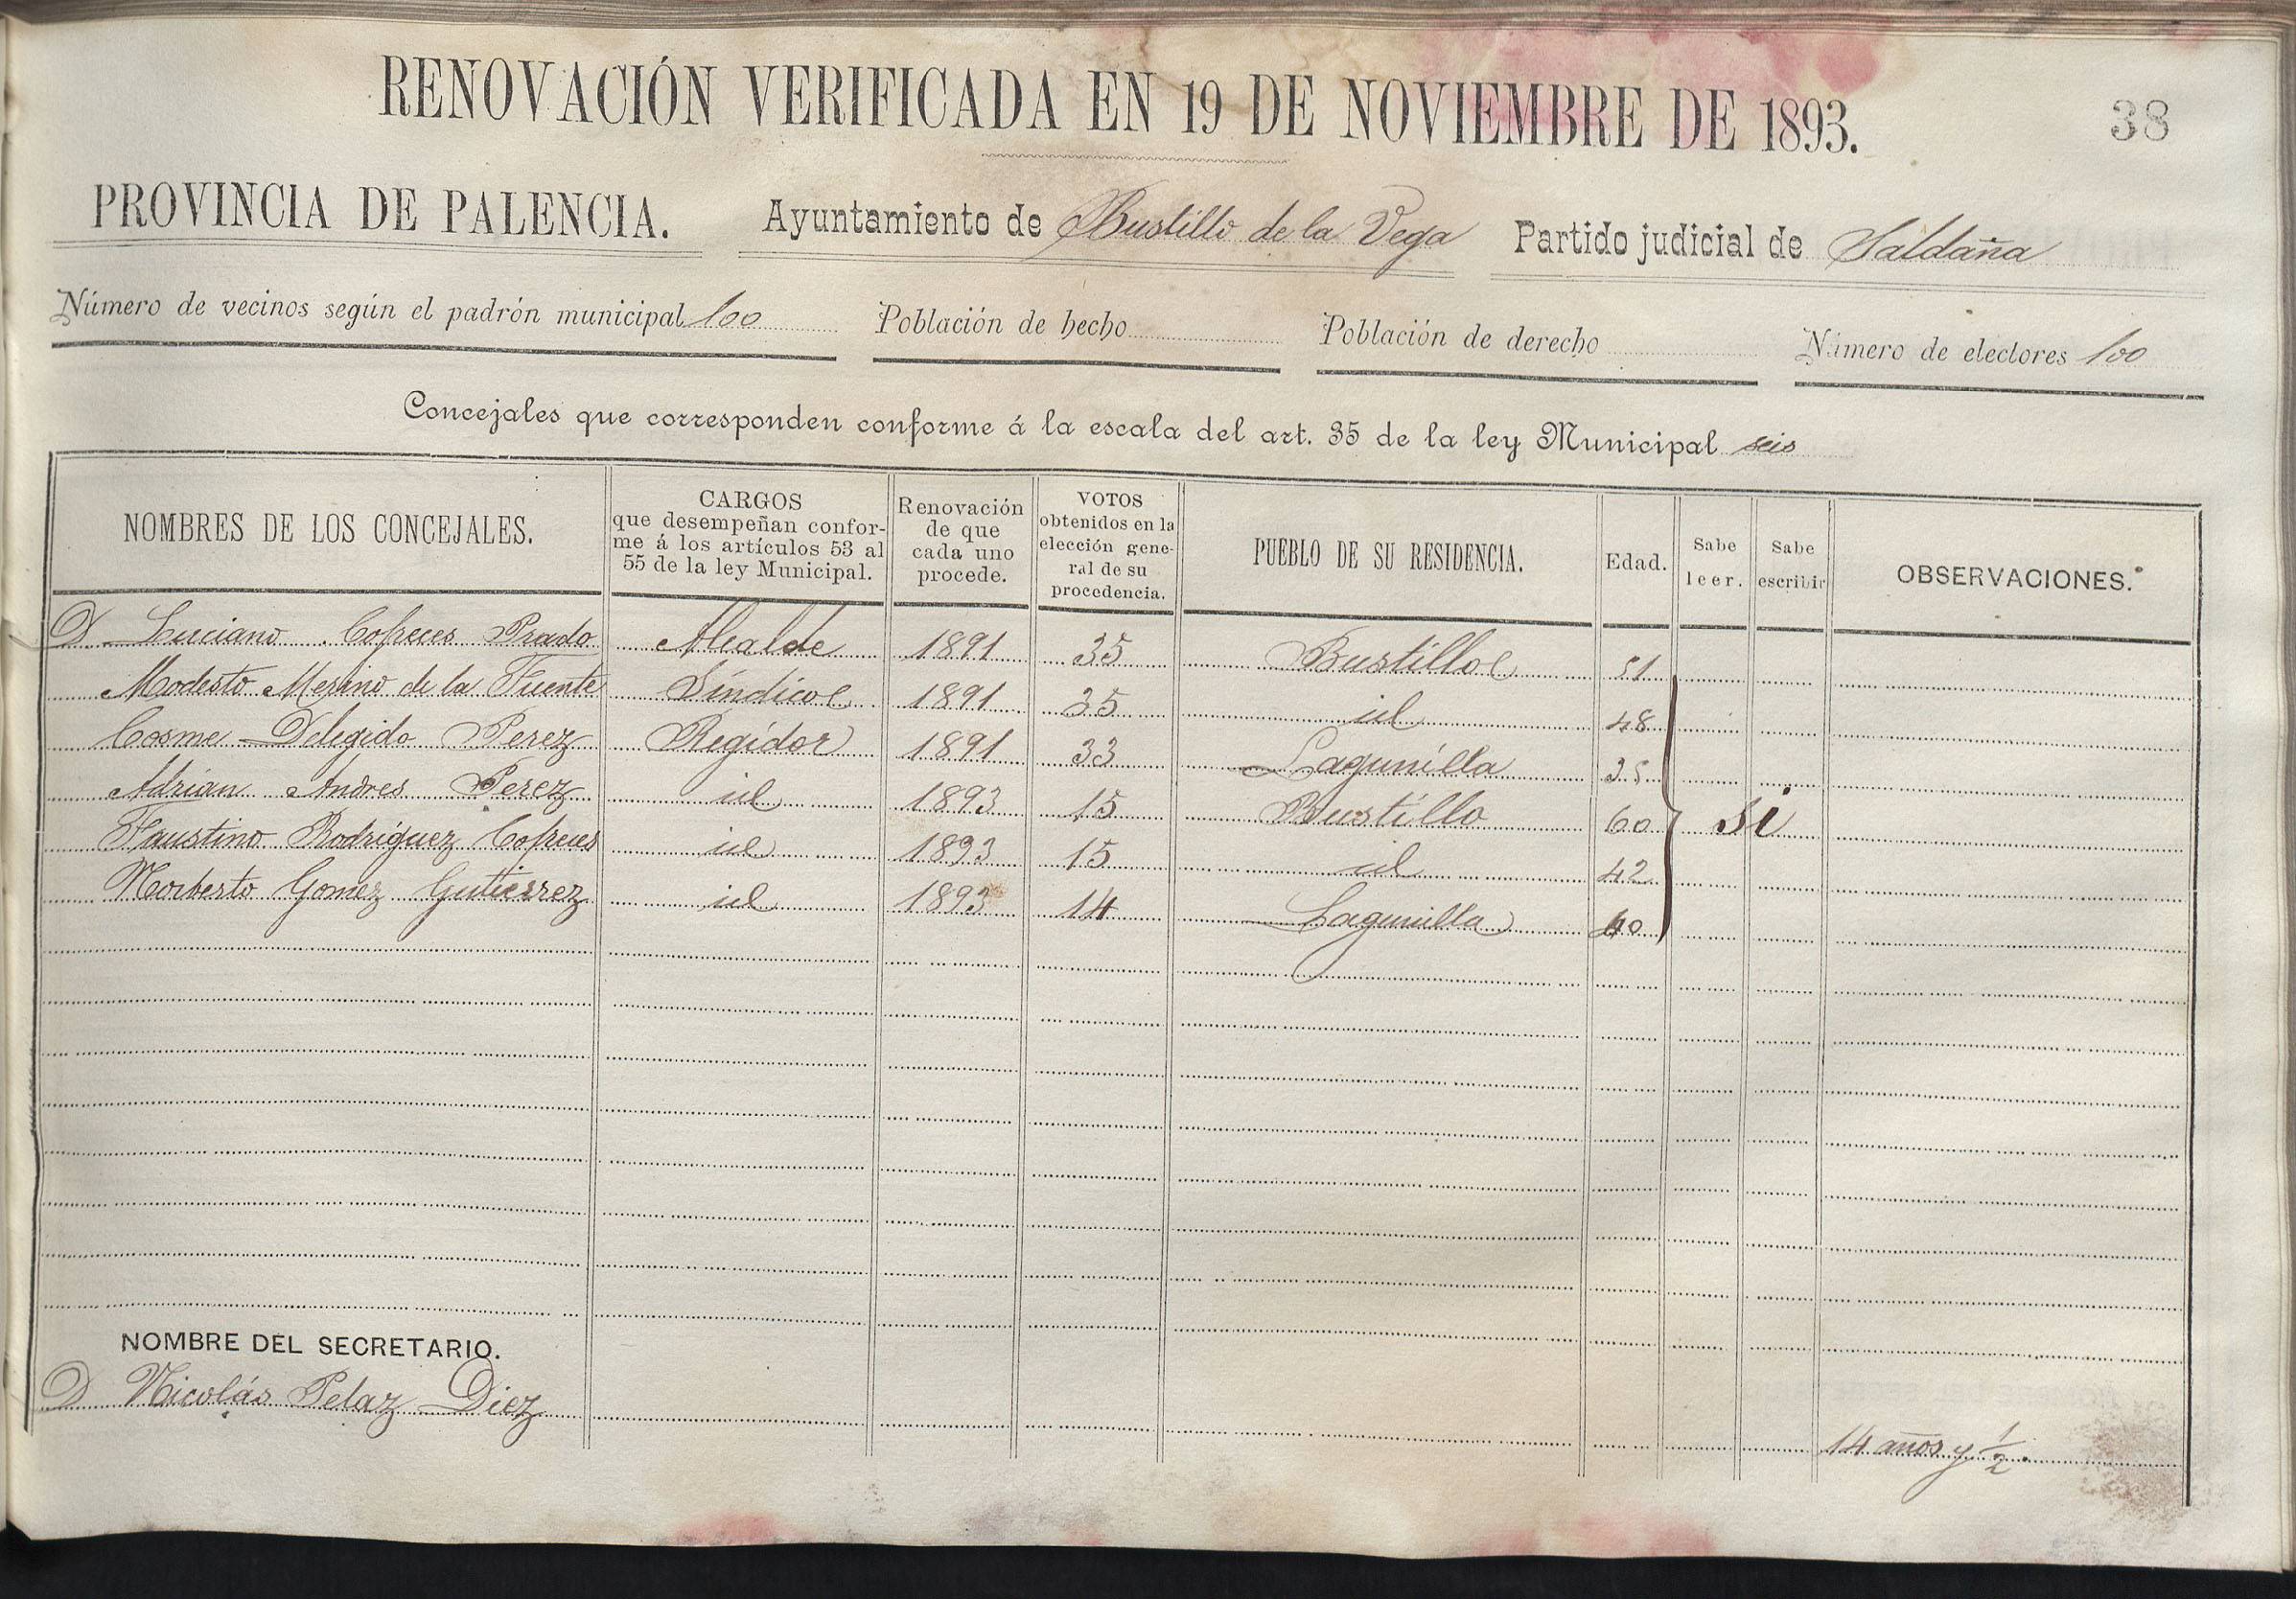 RENOVACIÓN VERIFICADA EN 19 DE NOVIEMBRE DE 1893.
38
PROVINCIA DE PALENCIA. Ayuntamiento de Bustillo de la Vega Partido judicial de Saldaña
Número de vecinos según el padrón municipal 100 Población de hecho Población de derecho Número de electores 100
Concejales que corresponden conforme á la escala del art. 35 de la ley Municipal seis
NOMBRES DE LOS CONCEJALES. CARGOS que desempeñan conforme á los artículos 53 al 55 de la ley Municipal. Renovación de que cada uno procede. VOTOS obtenidos en la elección general de su procedencia. PUEBLO DE SU RESIDENCIA. Edad. Sabe leer. Sabe escribir OBSERVACIONES.
D. Luciano Cofreces Prado Alcalde 1891 35 Bustillo 51
Modesto Merino de la Fuente Síndico 1891 35 id 48
Cosme Delegido Perez Regidor 1891 33 Lagunilla 35
Adrian Andres Perez id 1893 15 Bustillo 60 si
Faustino Rodriguez Cofreces id 1893 15 id 42
Norberto Gomez Gutierrez id 1893 14 Lagunilla
NOMBRE DEL SECRETARIO.
D Nicolás Pelaz Diez 14 años y 1/2.